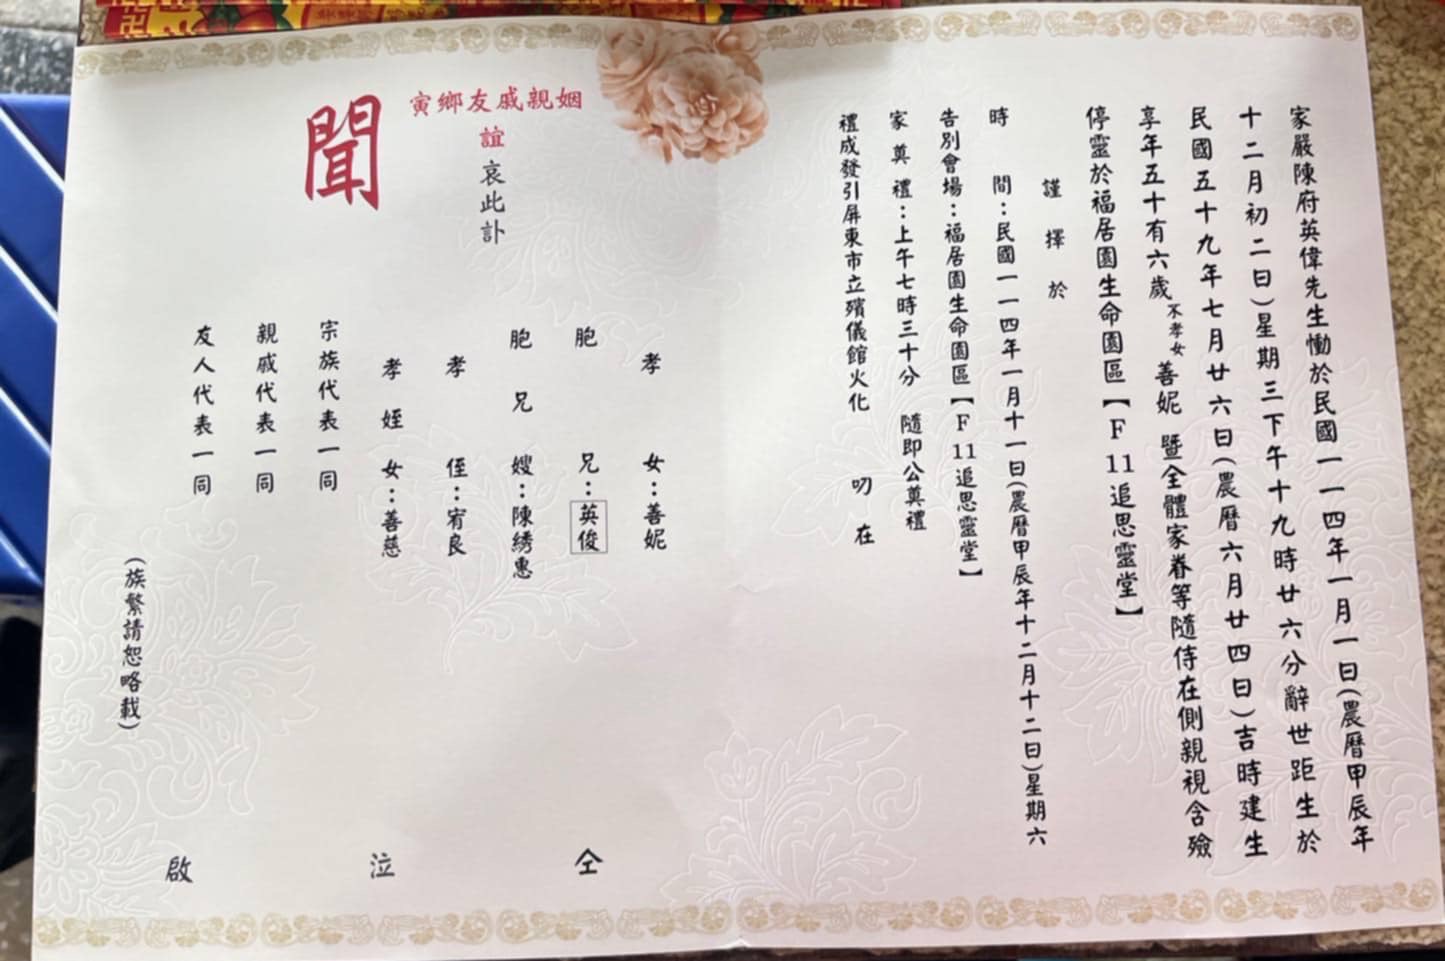 家嚴陳府英偉先生慟於民國一一四年一月一日(農曆甲辰年
十二月初二日)星期三下午十九時廿六分辭世距生於
民國五十九年七月廿六日(農曆六月廿四日)吉時建生
享年五十有六歲不孝女善妮 暨全體家眷等隨侍在側親視含殮
停靈於福居園生命園區【F11追思靈堂】
謹擇於
時間:民國一一四年一月十一日(農曆甲辰年十二月十二日)星期六
告別會場:福居園生命園區【F11追思靈堂】
家奠禮:上午七時三十分 隨即公奠禮
禮成發引屏東市立殯儀館火化 叨在
姻親戚友鄉寅
誼哀此訃
聞
孝女:善妮
胞兄:英俊
胞兄嫂:陳綉惠
孝侄:宥良
孝姪女:善慈
宗族代表一同
親戚代表一同
友人代表一同
(族繁請恕略載)
仝泣啟